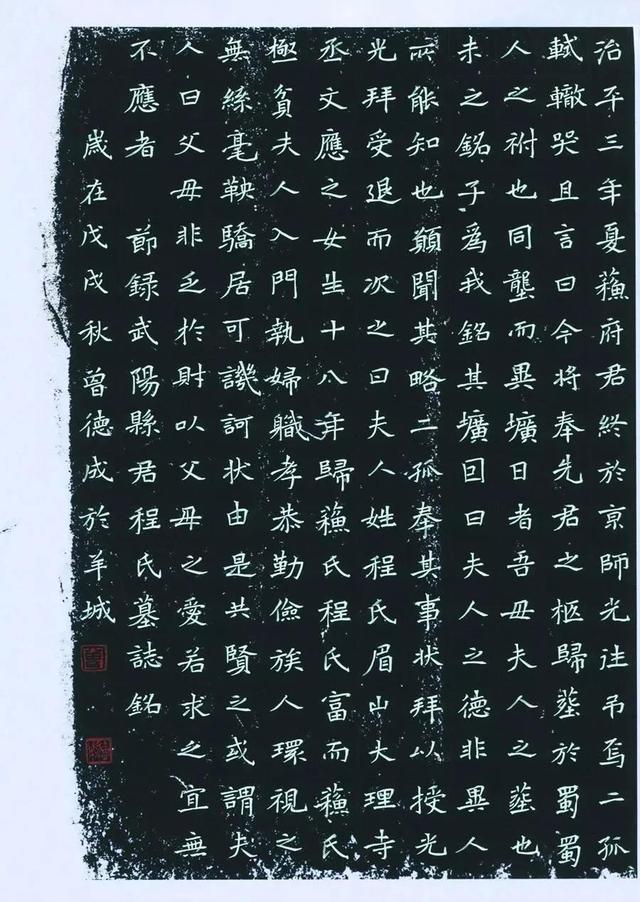 治平三年夏蘓府君終於京師光往弔焉二孤
軾轍哭且言曰今將奉先君之柩歸葬於蜀蜀
人之祔也同壟而異壙日者吾母夫人之葬也
未之銘子爲我銘其壙回曰夫人之德非異人
所能知也願聞其略二孤奉其事状拜以授光
光拜受退而次之曰夫人姓程氏眉山大理寺
丞文應之女生十八年歸蘓氏程氏富而蘓氏
極貧夫人入門執婦職孝恭勤儉族人環視之
無絲毫鞅驕居可譏訶状由是共賢之或謂夫
人曰父母非乏於財以父母之愛若求之宜無
不應者 節録武陽縣君程氏墓誌銘
歲在戊戌秋曾德成於羊城